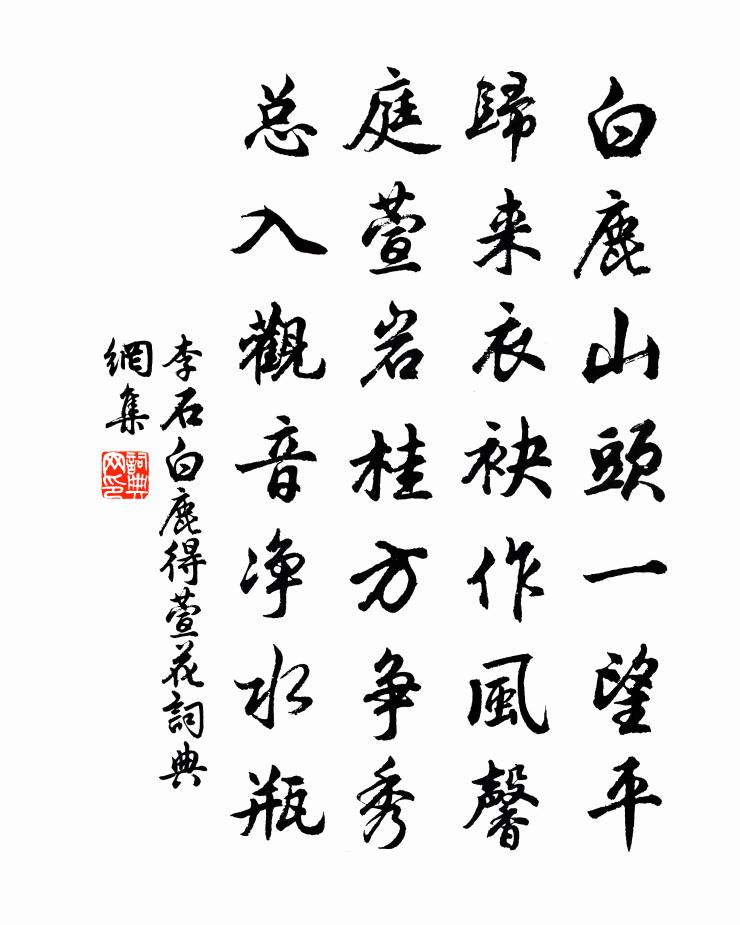 白鹿山頭一望平
歸来衣袂作風馨
庭萱岩桂方争秀
总入觀音净水瓶
李石白鹿得萱花詞典
網集
詞典
网印